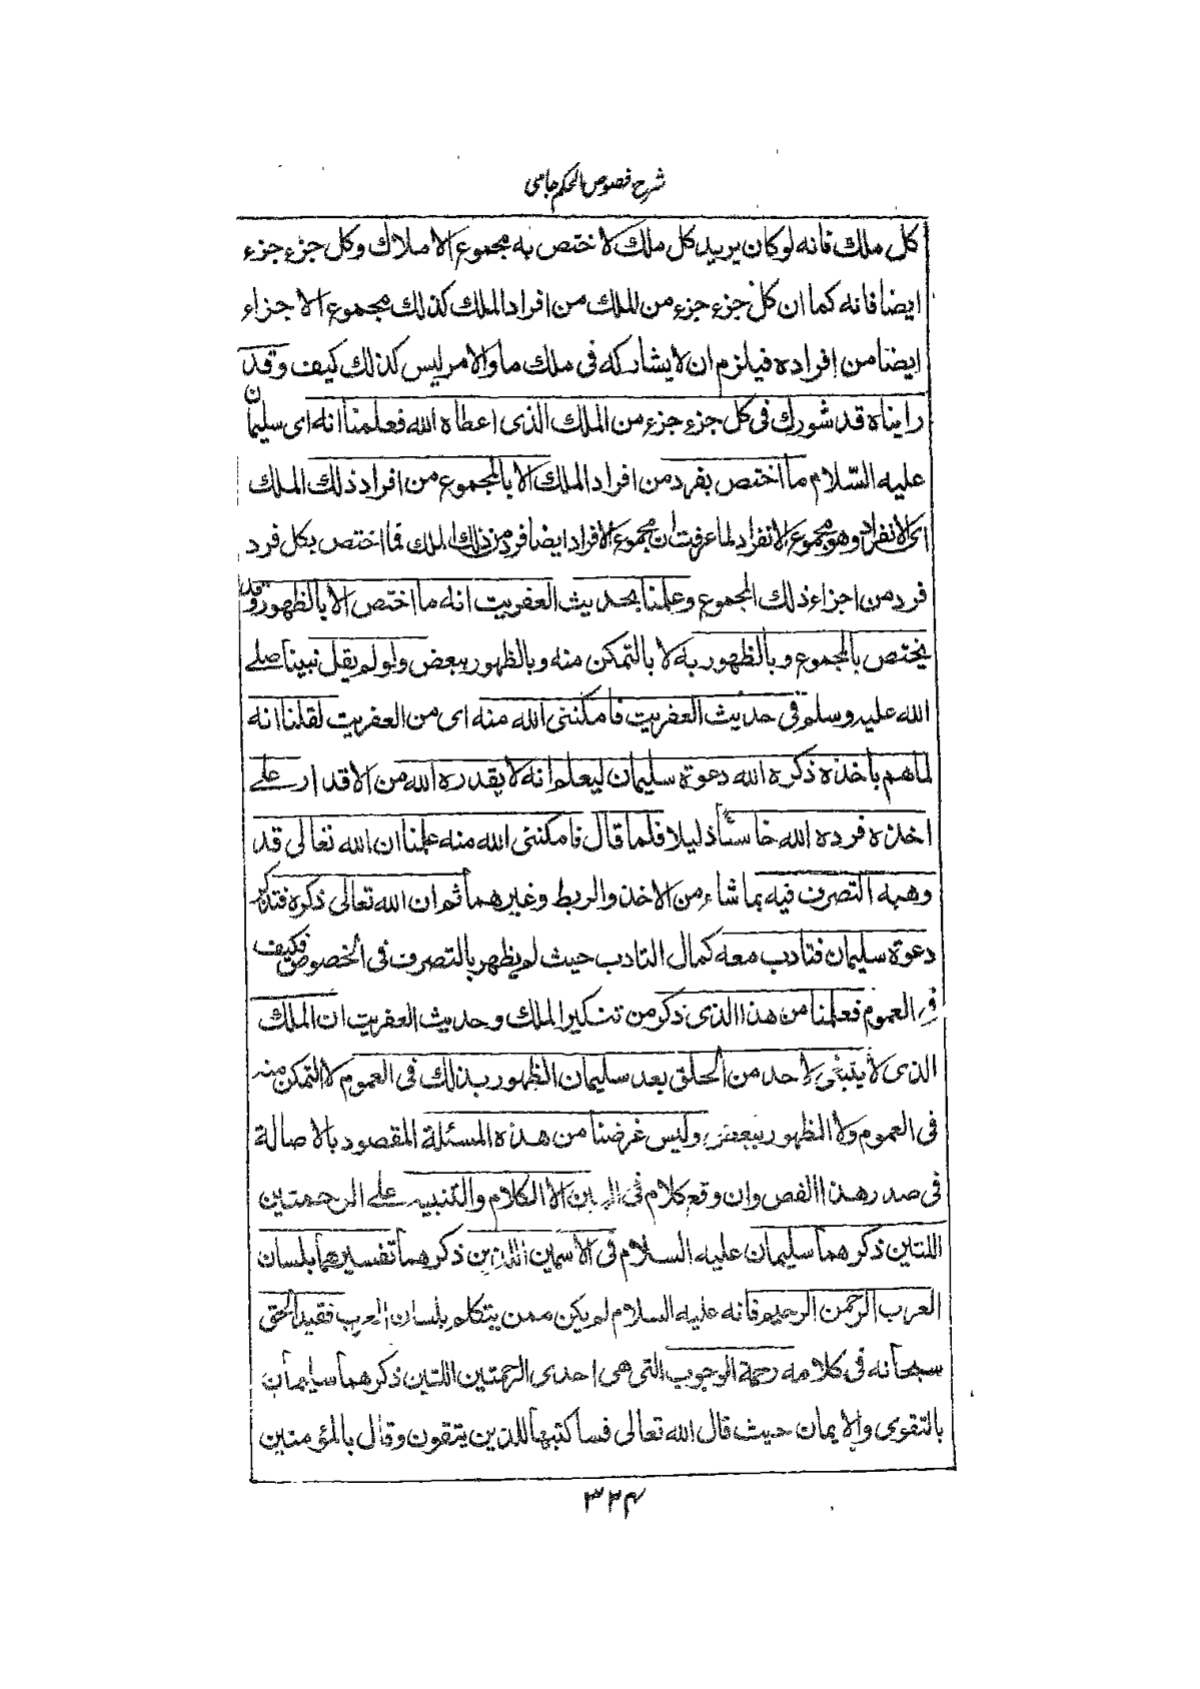 شرح فصوص الحكم جامى
كل ملك فانه لو كان يريد كل ملك لاختص به مجموع الاملاك وكل جزء جزء
ايضا فانه كما ان كل جزء جزء من الملك من افراد الملك كذلك مجموع الاجزاء
ايضا من افراده فيلزم ان لا يشاركه فى ملك ما والامر ليس كذلك كيف وقد
رايناه قد شورك فى كل جزء جزء من الملك الذى اعطاه الله فعلمنا انه اى سليمان
عليه السّلام ما اختص بفرد من افراد الملك الا بالمجموع من افراد ذلك الملك
اى الانفراد وهو مجموع الانفراد لما عرفت ان مجموع الافراد ايضا فرد من ذلك الملك فما اختص بكل فرد
فرد من اجزاء ذلك المجموع وعلمنا بحديث العفريت انه ما اختص الا بالظهور وقد
يختص بالمجموع وبالظهور به لا بالتمكن منه وبالظهور ببعض ولو لم يقل نبينا صلے
الله عليه وسلم فى حديث العفريت فامكننى الله منه اى من العفريت لقلنا انه
لما هم باخذه ذكره الله دعوة سليمان ليعلم انه لا يقدره الله من الاقدار علے
اخذه فرده الله خاسئًا ذليلا فلما قال فامكننى الله منه علمنا ان الله تعالى قد
وهبه التصرف فيه بما شاء من الاخذ والربط وغيرهما ثم ان الله تعالى ذكره فتذكر
دعوة سليمان فتادب معه كمال التادب حيث لم يظهر بالتصرف فى الخصوص فكيف
فى العموم فعلمنا من هذا الذى ذكر من تنكير الملك وحديث العفريت ان الملك
الذى لا ينبغى لاحد من الخلق بعد سليمان الظهور بذلك فى العموم لا التمكن منه
فى العموم ولا الظهور ببعض وليس غرضنا من هذه المسئلة المقصود بالاصالة
فى صدر هذا الفص وان وقع كلام فى البين الا الكلام والتنبيه علے الرحمتين
اللتين ذكرهما سليمان عليه السلام فى الاسمين اللذين ذكرهما تفسيرهما بلسان
العرب الرحمن الرحيم فانه عليه السلام لم يكن ممن يتكلم بلسان العرب فقيد الحق
سبحانه فى كلامه رحمة الوجوب التى هى احدى الرحمتين اللتين ذكرهما سليمان
بالتقوى والايمان حيث قال الله تعالى فساكتبها للذين يتقون وقال بالمؤمنين
۳۲۴